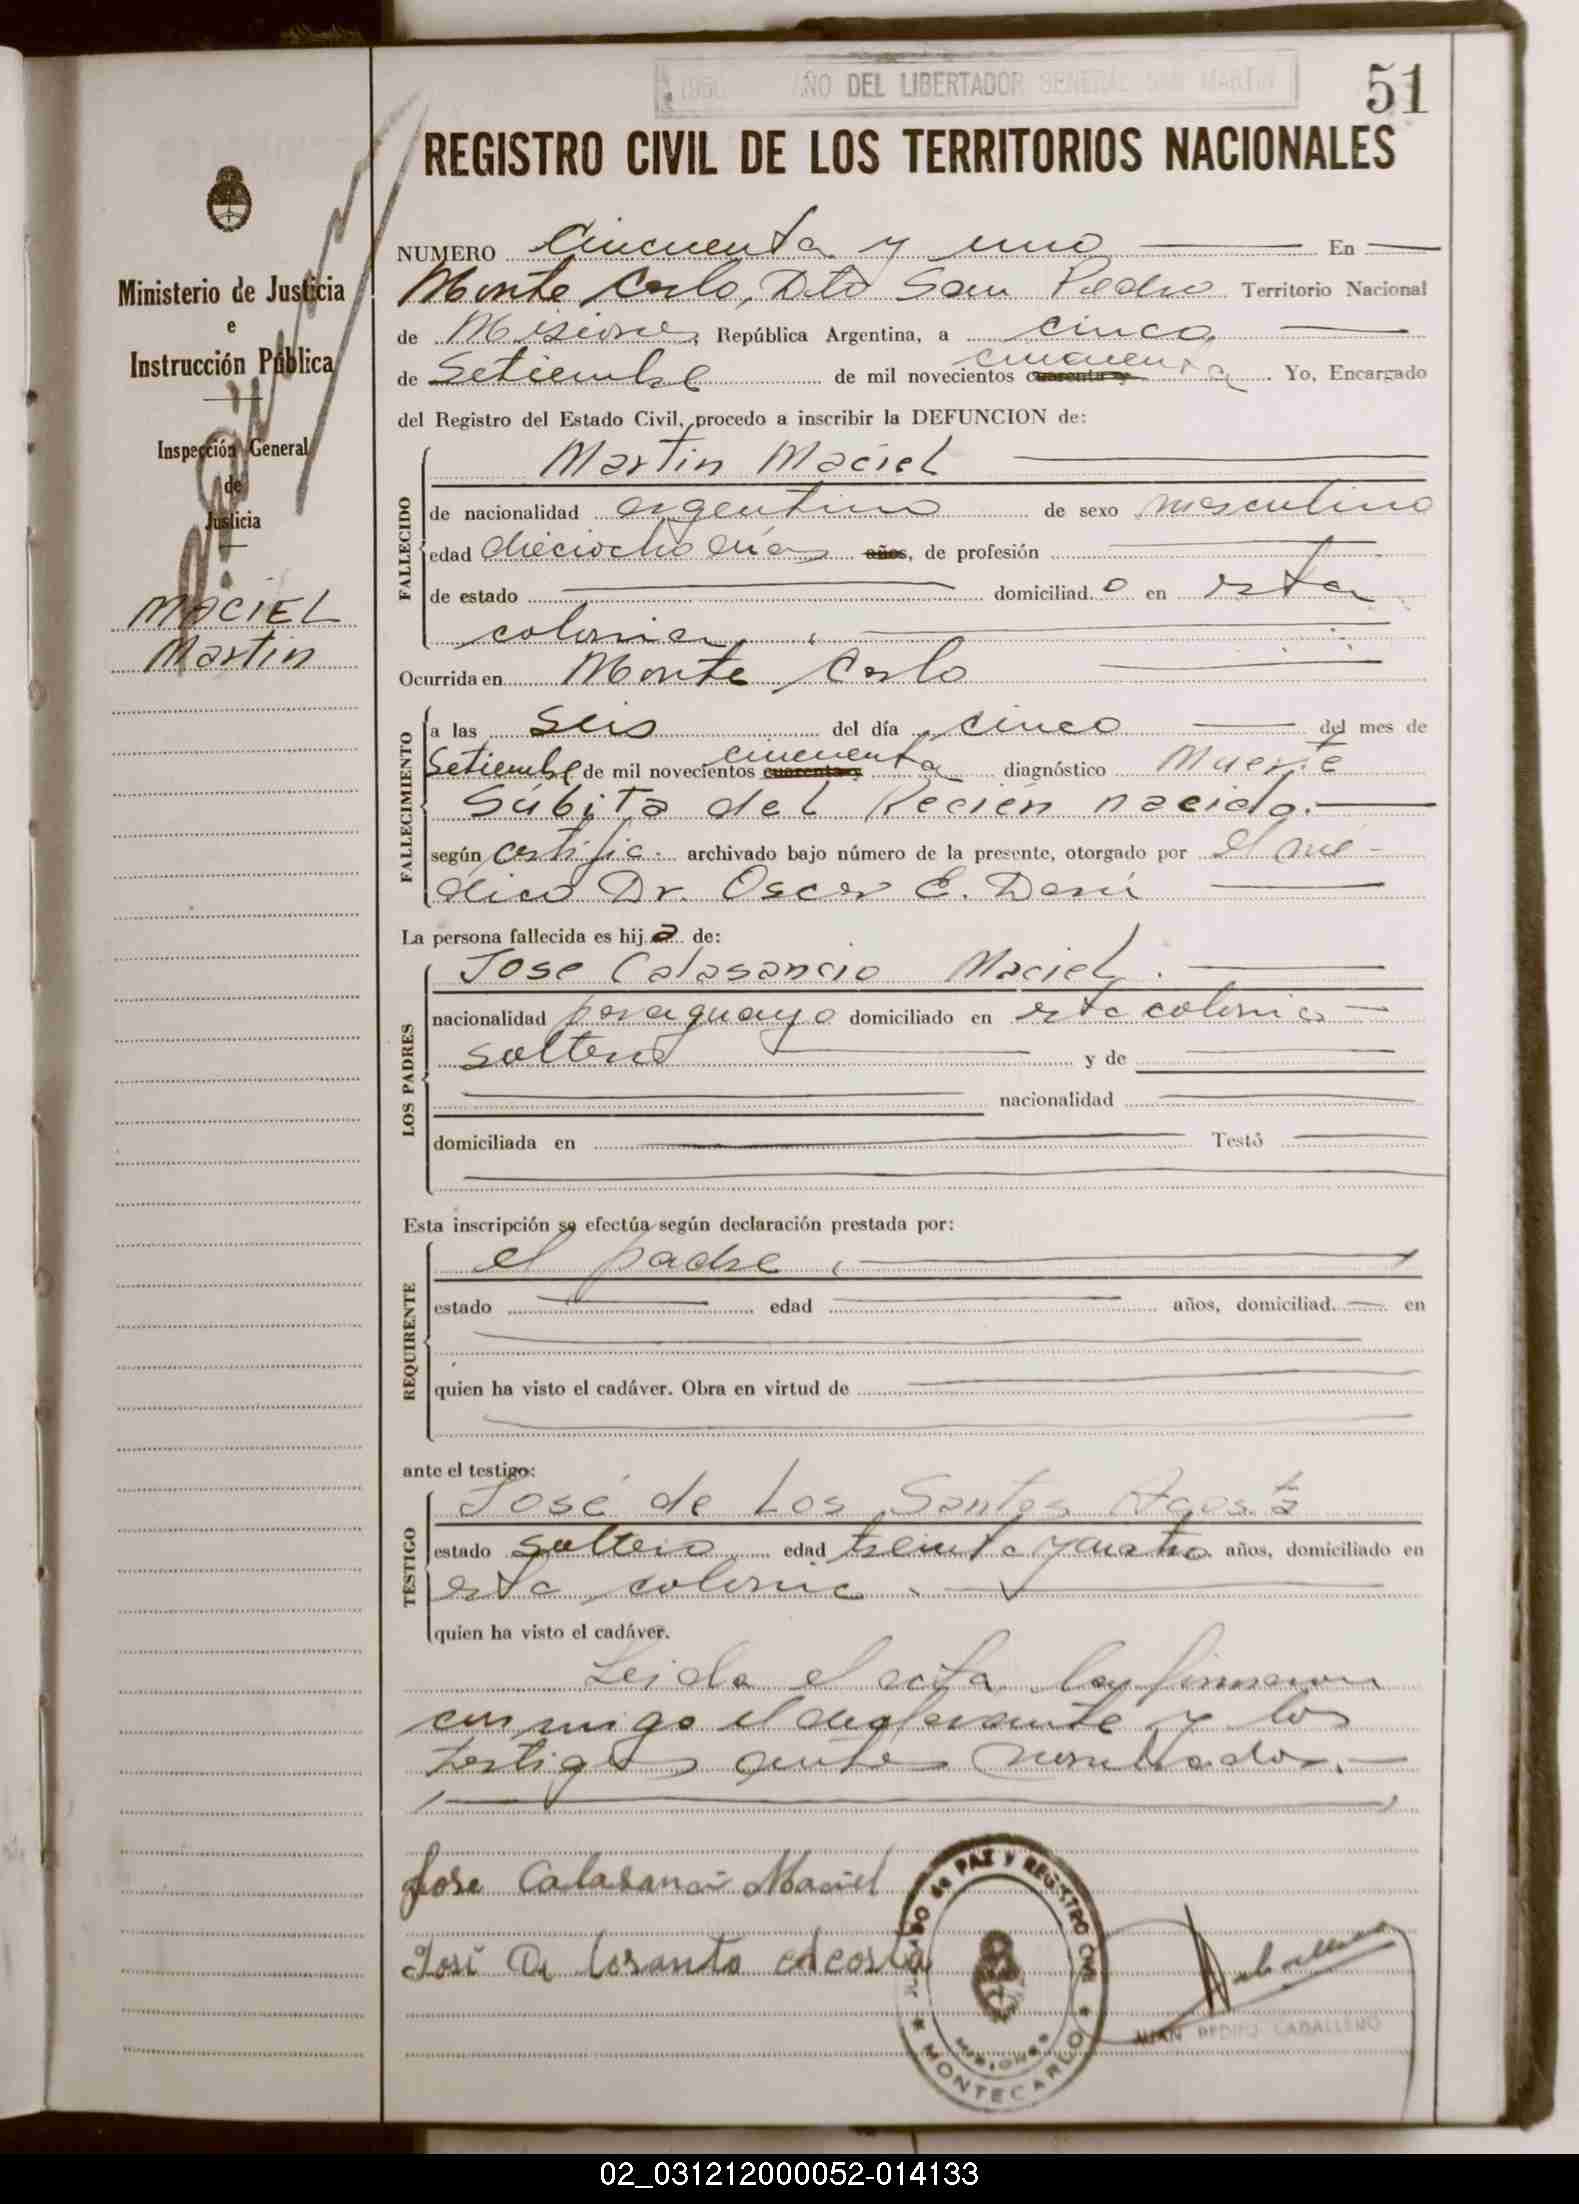 1950 AÑO DEL LIBERTADOR GENERAL SAN MARTIN
51
REGISTRO CIVIL DE LOS TERRITORIOS NACIONALES
Ministerio de Justicia
e
Instrucción Pública
Inspección General
de
Justicia
MACIEL
Martin
NUMERO Cincuenta y uno En
Monte Carlo, Dto San Pedro Territorio Nacional
de Misiones, República Argentina, a cinco
de Setiembre de mil novecientos cuarenta y cincuenta. Yo, Encargado
del Registro del Estado Civil, procedo a inscribir la DEFUNCION de:
FALLECIDO
Martin Maciel
de nacionalidad argentina de sexo masculino
edad dieciocho dias años, de profesión
de estado domiciliado en esta
colonia
Ocurrida en Monte Carlo
FALLECIMIENTO
a las seis del día cinco del mes de
Setiembre de mil novecientos cuarenta y cincuenta diagnóstico Muerte
Súbita del Recién nacido.
según certific. archivado bajo número de la presente, otorgado por el mé-
dico Dr. Oscar E.
La persona fallecida es hijo de:
LOS PADRES
Jose Calasancio Maciel.
nacionalidad paraguayo domiciliado en esta colonia
soltero y de
nacionalidad
domiciliada en Testó
Esta inscripción se efectúa según declaración prestada por:
REQUIRENTE
el padre
estado edad años, domiciliad en
quien ha visto el cadáver. Obra en virtud de
ante el testigo:
TESTIGO
José de Los Santos Acosta
estado soltero edad treinta y cuatro años, domiciliado en
esta colonia.
quien ha visto el cadáver.
Leida el acta, la firmaron
conmigo el declarante y los
testigos antes nombrados.
Jose Calasancio Maciel
José De losanto Acosta
JUZGADO de PAZ Y REGISTRO CIVIL
MISIONES
MONTECARLO
JUAN PEDRO CABALLERO
02_031212000052-014133